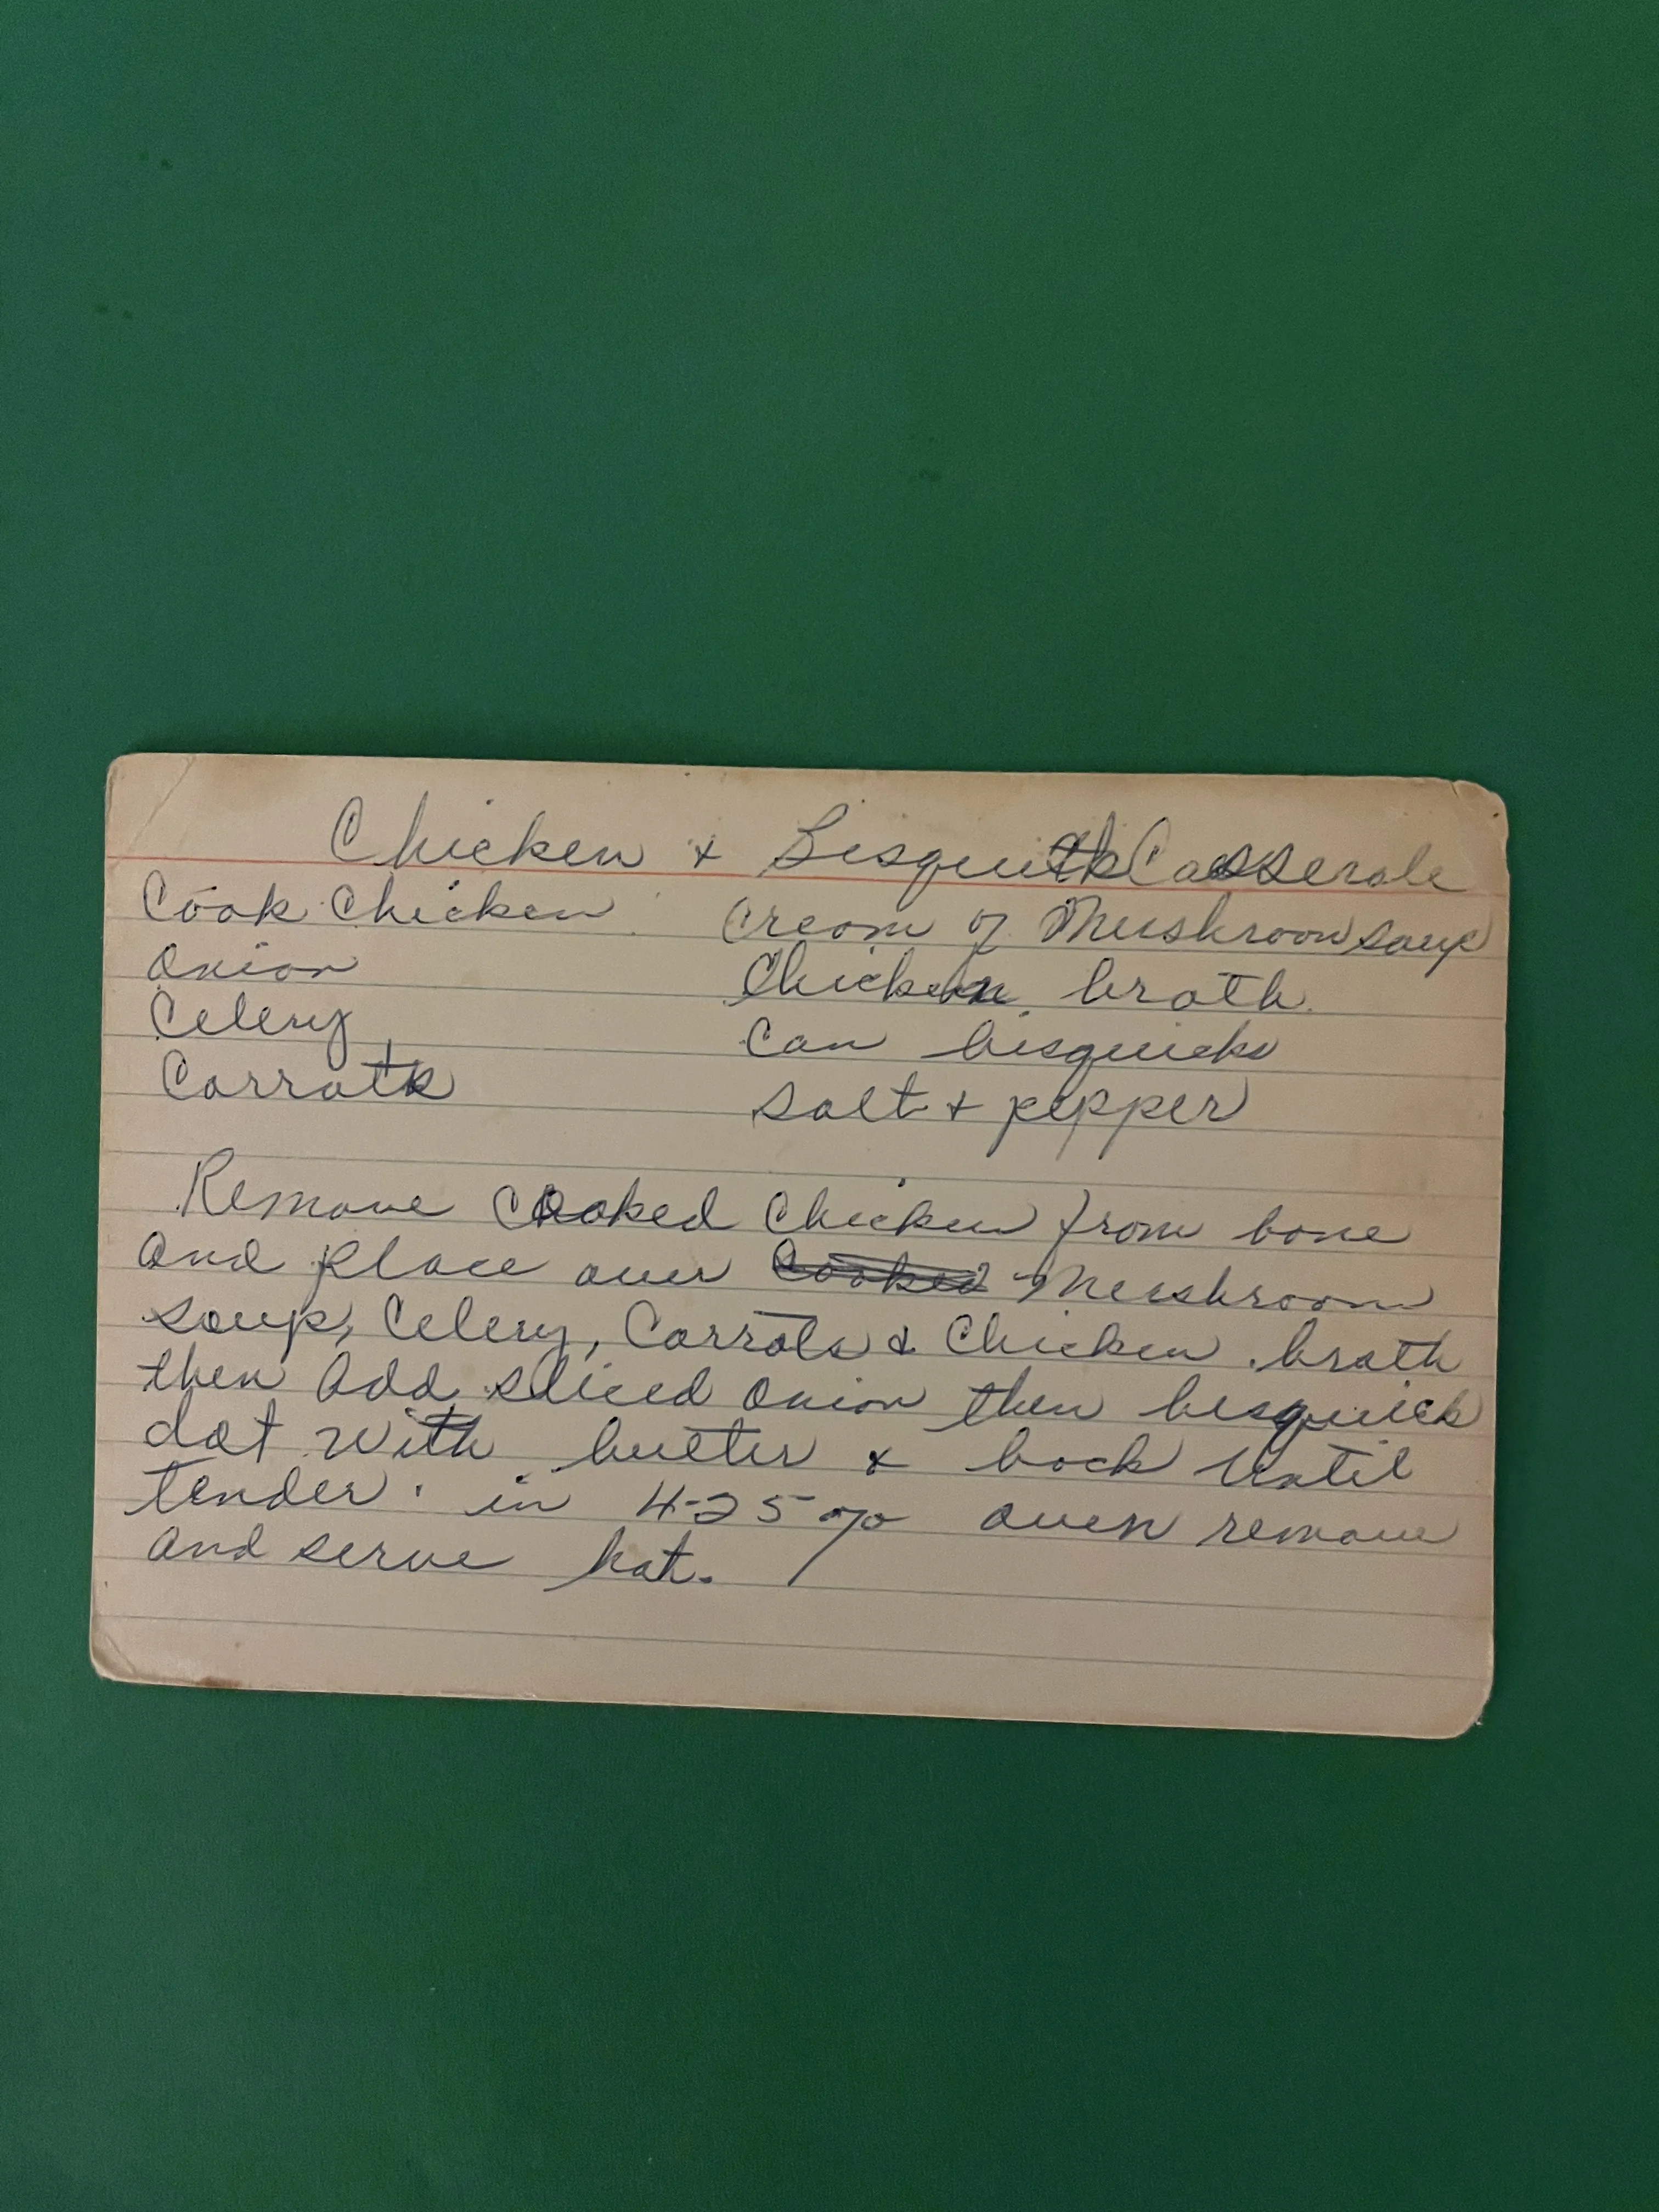 Chicken + Bisquitk Casserole
Cook Chicken
Onion
Celery
Carrots
Cream of Mushroom soup
Chicken broth.
Can bisquicks
Salt + pepper
Remove cooked Chicken from bone
and place over Cooked Mushroom
soup, Celery, Carrots & Chicken broth
then add sliced onion then bisquick
dot with butter & bock until
tender. in 425% oven remove
and serve hot.